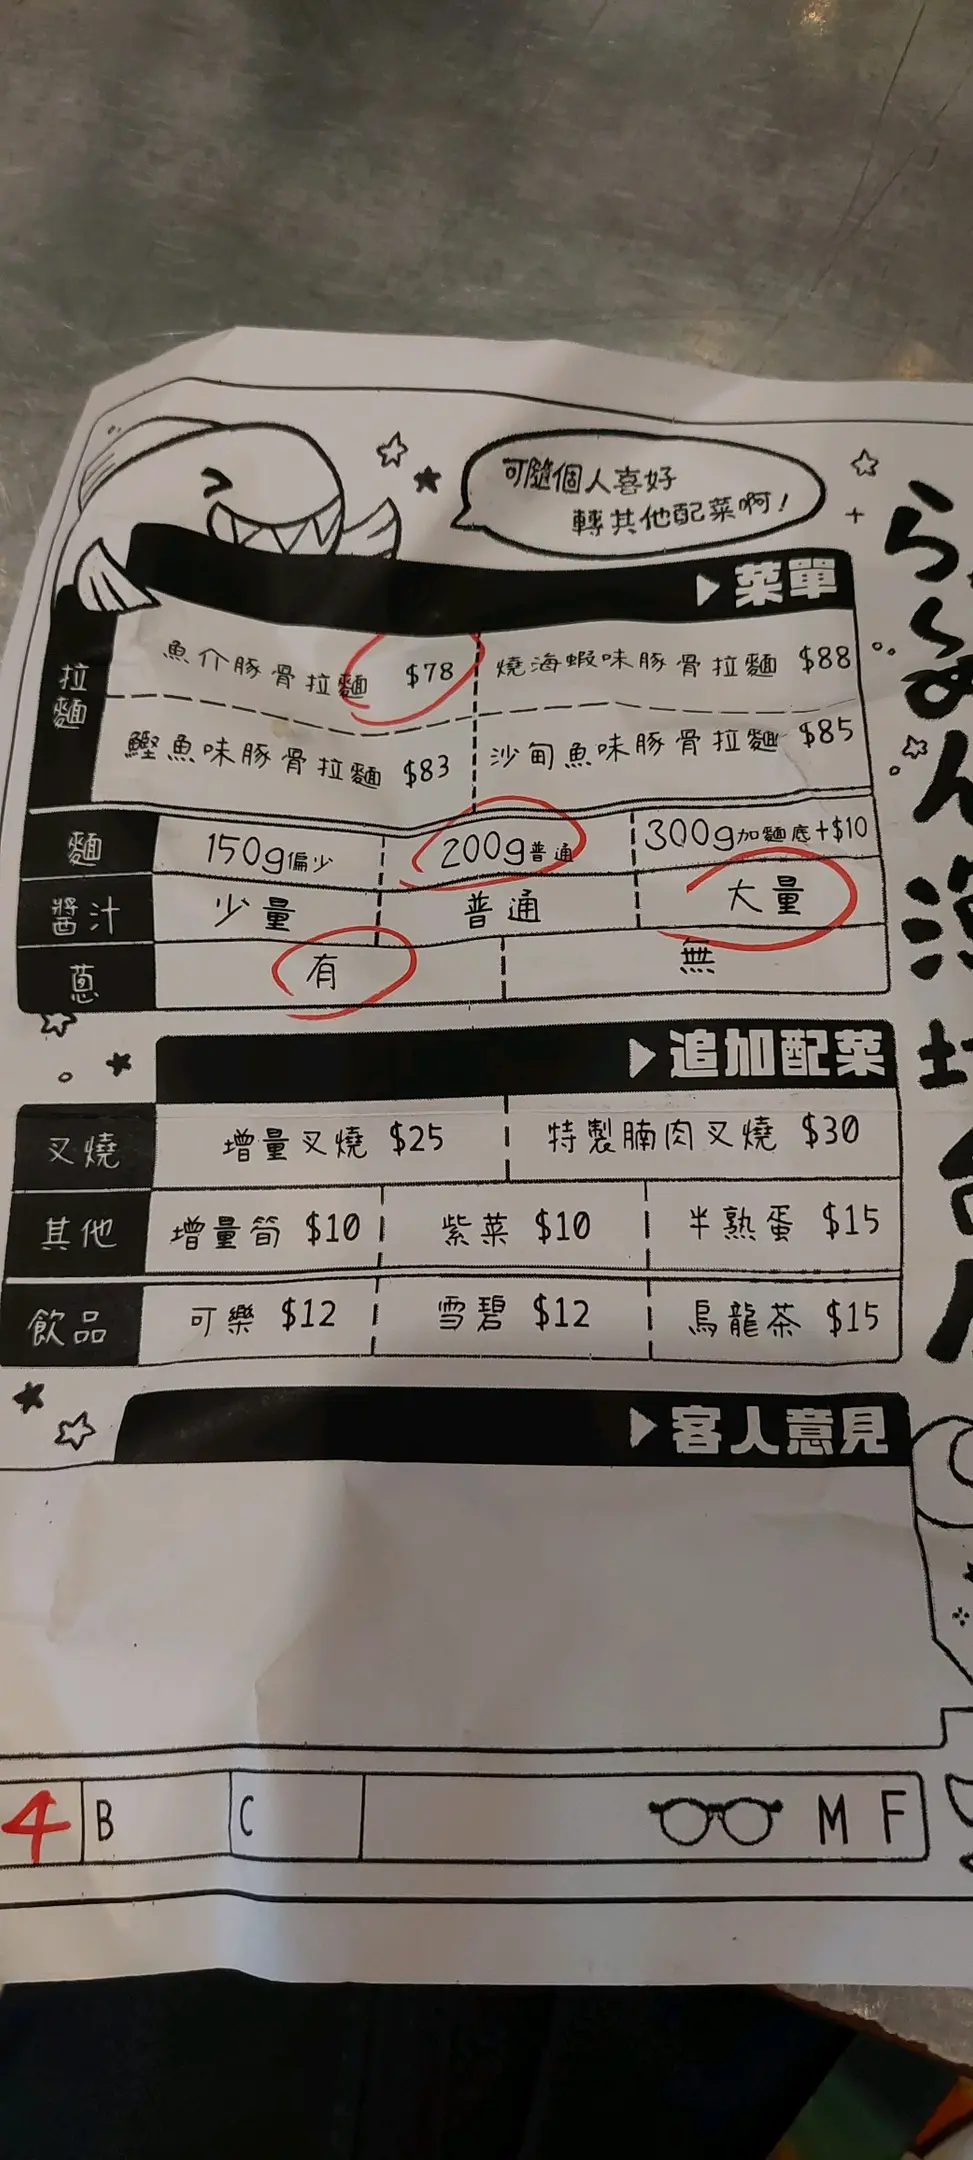 可隨個人喜好
轉其他配菜啊!
▶菜單
拉麵
魚介豚骨拉麵 $78
燒海蝦味豚骨拉麵 $88
鰹魚味豚骨拉麵 $83
沙甸魚味豚骨拉麵 $85
麵 150g偏少 200g普通 300g加麵底+$10
醬汁 少量 普通 大量
蔥 有 無
▶追加配菜
叉燒 增量叉燒 $25 特製腩肉叉燒 $30
其他 增量筍 $10 紫菜 $10 半熟蛋 $15
飲品 可樂 $12 雪碧 $12 烏龍茶 $15
▶客人意見
4 B C M F